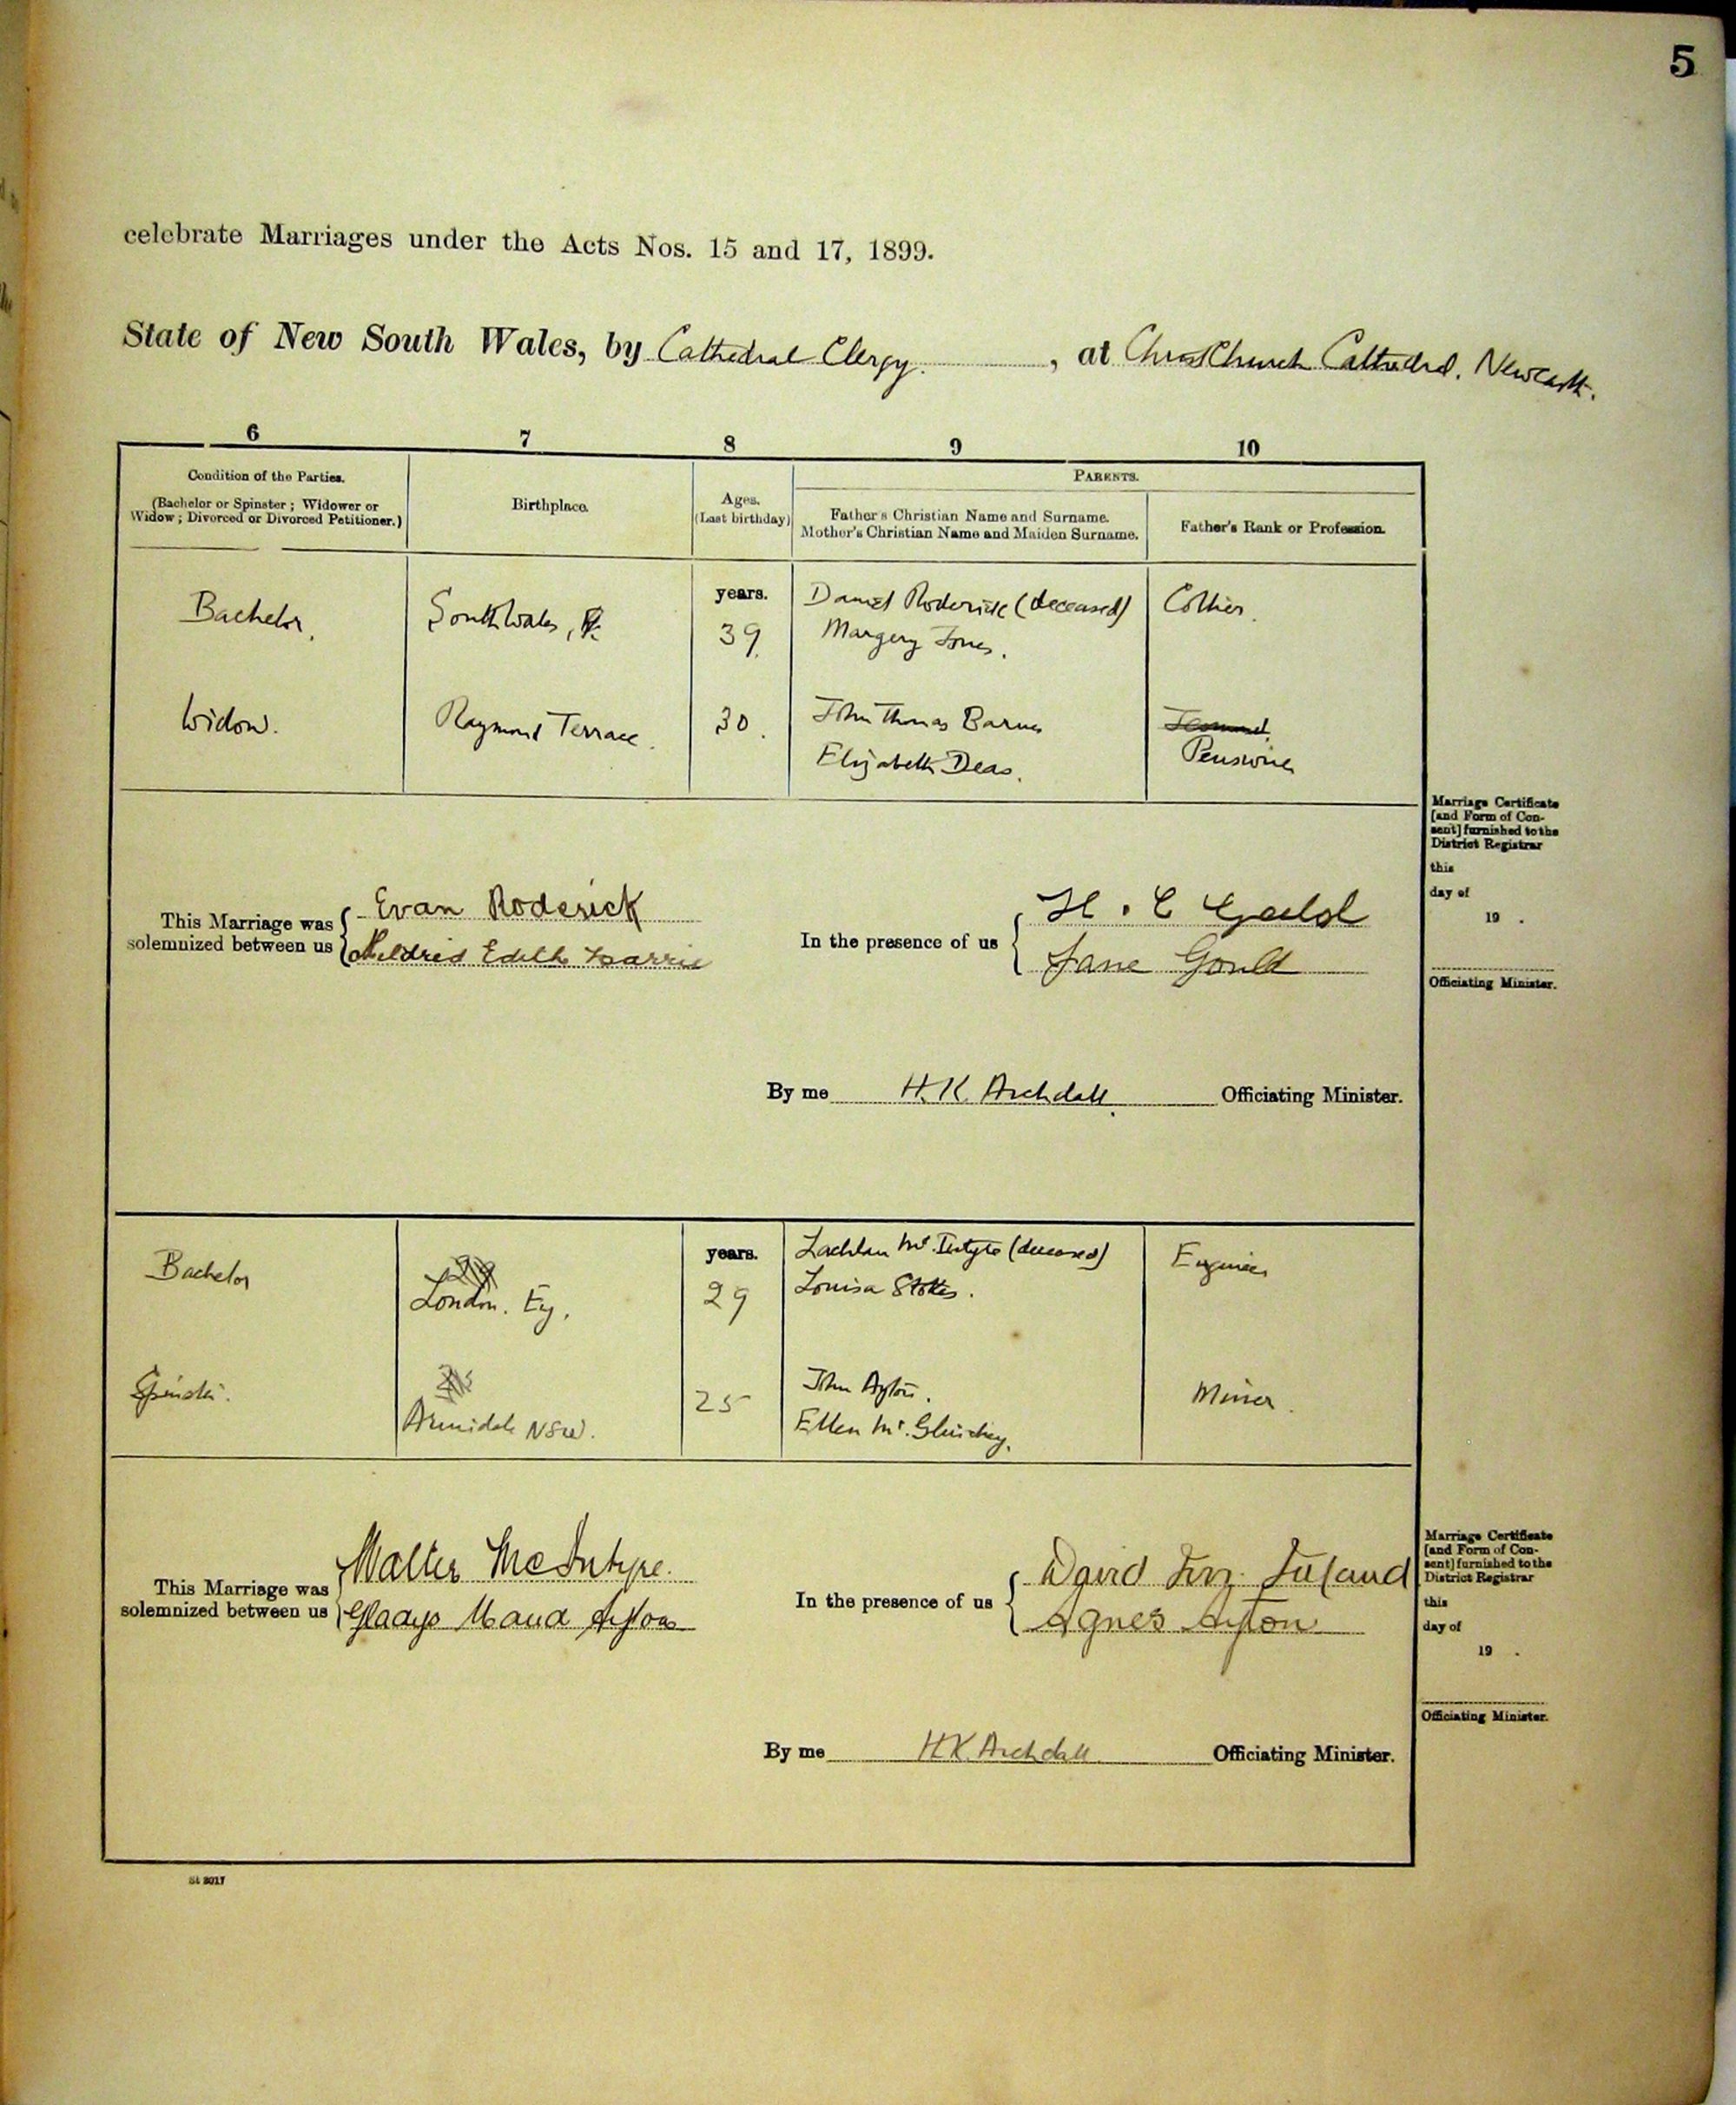 5
celebrate Marriages under the Acts Nos. 15 and 17, 1899.
State of New South Wales, by Cathedral Clergy. , at Christ Church Cathedral. Newcastle.
6 7 8 9 10
Condition of the Parties.
(Bachelor or Spinster ; Widower or
Widow ; Divorced or Divorced Petitioner.)
Birthplace.
Ages.
(Last birthday)
PARENTS.
Father's Christian Name and Surname.
Mother's Christian Name and Maiden Surname.
Father's Rank or Profession.
Bachelor.
South Wales,
years.
39.
Daniel Roderick (deceased)
Margery Jones.
Collier.
Widow.
Raymond Terrace.
30.
John Thomas Barnes
Elizabeth Deas.
Pensioner
This Marriage was
solemnized between us
Evan Roderick
Mildred Edith
In the presence of us
H. C
Jane Gould
By me H. K. Archdall. Officiating Minister.
Marriage Certificate
[and Form of Con-
sent] furnished to the
District Registrar
this
day of
19 .
Officiating Minister.
Bachelor
29
London. Eng.
years.
29
Lachlan McIntyre (deceased)
Louisa Stokes.
Engineer
Spinster.
25
Armidale NSW.
25
John Ayton.
Ellen Mc.
Miner.
This Marriage was
solemnized between us
Walter McIntyre.
Gladys Maud Ayton
In the presence of us
David
Agnes Ayton
By me H K. Archdall Officiating Minister.
Marriage Certificate
[and Form of Con-
sent] furnished to the
District Registrar
this
day of
19 .
Officiating Minister.
St 3017